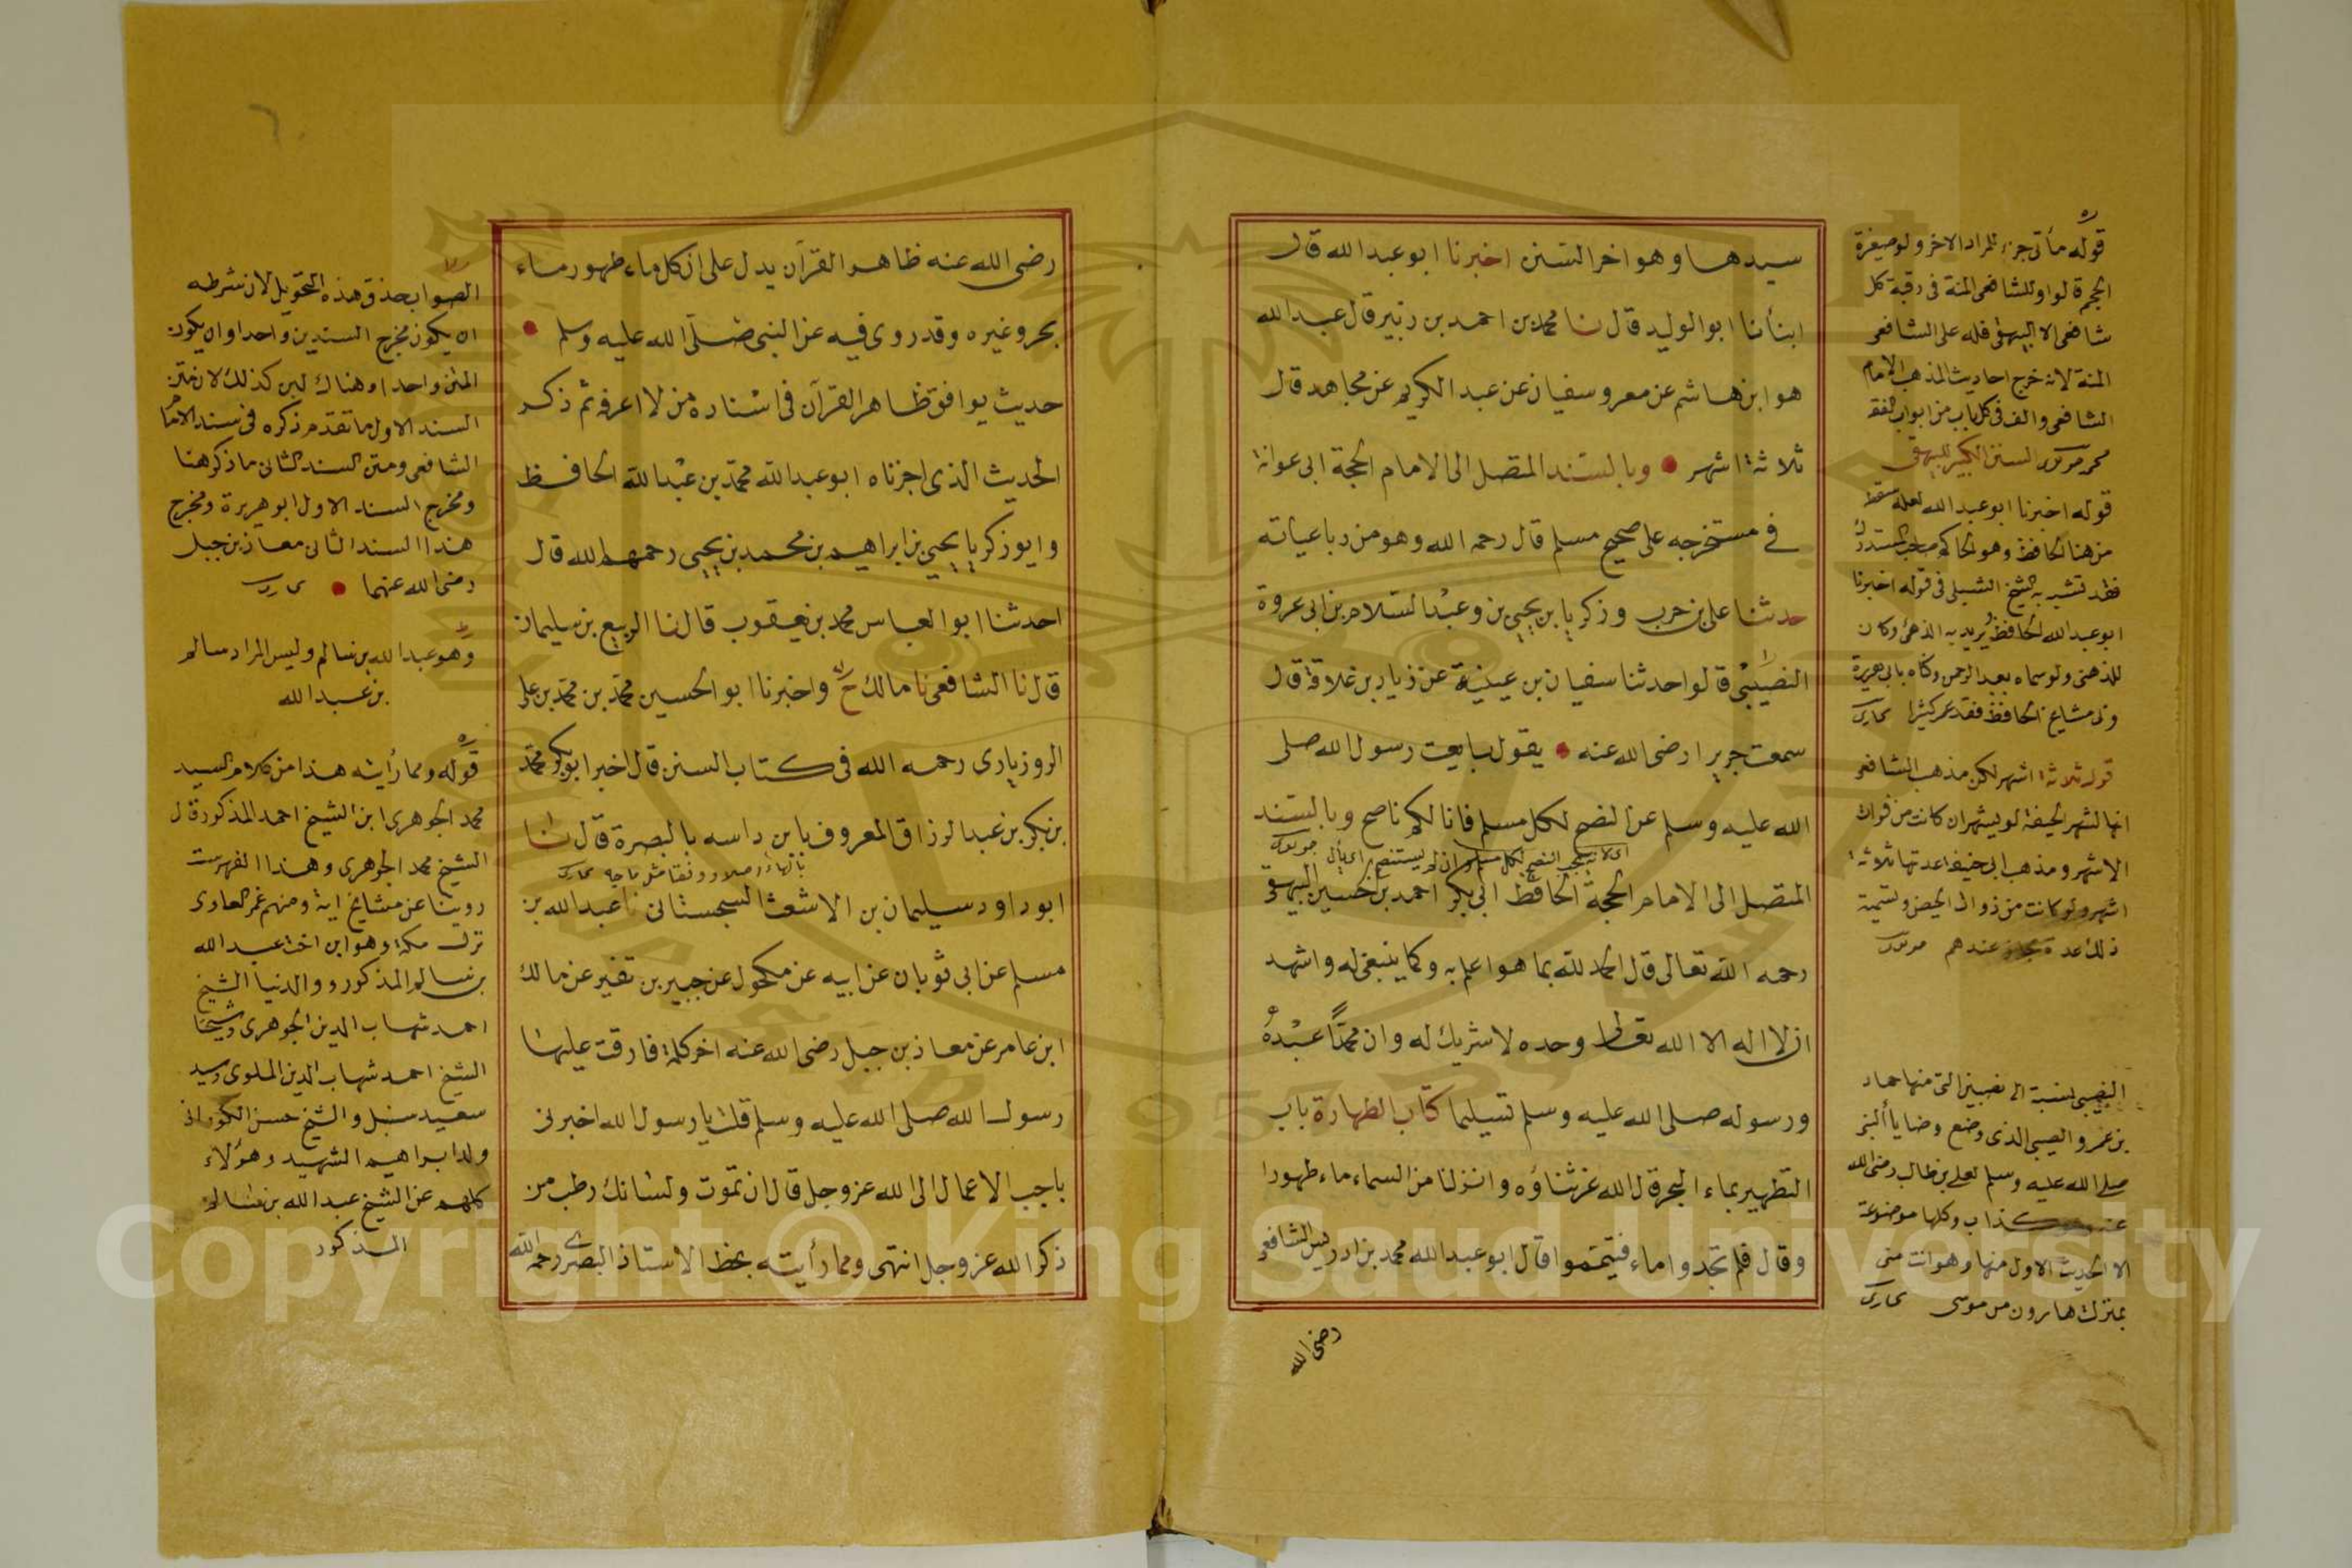 سيدها وهو اخر السنن اخبرنا ابو عبد الله قال
انبأنا ابو الوليد قال نا محمد بن احمد بن زبير قال عبد الله
هو ابن هاشم عن معر وسفيان عن عبد الكريم عن مجاهد قال
ثلاثة اشهر وبالسند المتصل الى الامام الحجة ابى عوانة
في مستخرجه على صحيح مسلم قال رحمه الله وهو من رباعياته
حدثنا على بن حرب وزكريا بن يحيى بن وعبد السلام بن ابى عروة
النصيبى قالوا حدثنا سفيان بن عيينة عن زياد بن علاقة قال
سمعت جريرا رضى الله عنه يقول بايعت رسول الله صلى
الله عليه وسلم عن النصح لكل مسلم فانا لكم ناصح وبالسند
المتصل الى الامام الحجة الحافظ ابى بكر احمد بن حسين البيهقى
رحمه الله تعالى قال الحمد لله بما هو اعلم به وكما ينبغى له واشهد
ان لا اله الا الله تعالى وحده لا شريك له وان محمدا عبده
ورسوله صلى الله عليه وسلم تسليما كتاب الطهارة باب
التطهير بماء البحر قال الله عز ثناؤه وانزلنا من السماء ماء طهورا
وقال فلم تجدوا ماء فتيمموا قال ابو عبد الله محمد بن ادريس الشافعى
رضى الله
قوله ما تى جزء المراد الاخر ولو صيغرة
الحجم قوله اوللشافعى المنة فى رقبة كل
شافعى الا البيهقى فله على الشافعى
المنة لانه خرج احاديث المذهب الامام
الشافعى والف فى كل باب من ابواب الفقه
السنن الكبير للبيهقى
قوله اخبرنا ابو عبد الله لعله سقط
من هنا الحافظ وهو الحاكم صاحب المستدرك
ابو عبد الله الحافظ يريد به الذهبى وكان
قوله ثلاثة اشهر لكن مذهب الشافعى
الاشهر ومذهب ابى حنيفة عدتها ثلاثة
اشهر ولو كانت من ذوات الحيض وتسمية
النصيبى نسبة الى نصيبين التى منها حماد
بن عمرو النصيبى الذى وضع وصايا النبى
صلى الله عليه وسلم لعلى بن طالب رضى الله
كذاب وكلها موضوعة
الا الحديث الاول منها وهو انت منى
بمنزلة هارون من موسى
رضى الله عنه ظاهر القرآن يدل على ان كل ماء طهور ماء
بحر وغيره وقد روى فيه عن النبى صلى الله عليه وسلم
حديث يوافق ظاهر القرآن فى اسناده من لا اعرفه ثم ذكر
الحديث الذى اخبرناه ابو عبد الله محمد بن عبد الله الحافظ
وابو زكريا يحيى بن ابراهيم بن محمد بن يحيى رحمهم الله قال
احدثنا ابو العباس محمد بن يعقوب قال نا الربيع بن سليمان
قال نا الشافعى نا مالك ح واخبرنا ابو الحسين محمد بن محمد بن على
الروزبارى رحمه الله فى كتاب السنن قال اخبر ابو بكر محمد
بن بكر بن عبد الرزاق المعروف بابن داسه بالبصرة قال ثنا
ابو داود سليمان بن الاشعث السجستانى نا عبد الله بن
مسلم عن ابى ثوبان عن ابيه عن مكحول عن جبير بن نفير عن مالك
ابن عامر عن معاذ بن جبل رضى الله عنه اخر كلمة فارقت عليها
رسول الله صلى الله عليه وسلم قلت يا رسول الله اخبرنى
باحب الاعمال الى الله عز وجل قال ان تموت ولسانك رطب من
ذكر الله عز وجل انتهى ومما رأيته بخط الاستاذ البصرى رحمه الله
الصواب حذف هذه التحويل لان شرطه
ان يكون مخرج السندين واحدا وان يكون
المتن واحدا وهناك ليس كذلك لان متن
السند الاول ما تقدم ذكره فى سند الامام
الشافعى ومتن السند الثانى ما ذكر هنا
ومخرج السند الاول ابو هريرة ومخرج
هذا السند الثانى معاذ بن جبل
رضى الله عنهما
وهو عبد الله بن سالم وليس المراد سالم
بن عبد الله
قوله ومما رأيته هذا من كلام السيد
محمد الجوهرى ابن الشيخ احمد المذكور قال
الشيخ محمد الجوهرى وهذا الفهرست
روينا عن مشايخ اية ومنهم عمر العاوى
نزل مكة وهو ابن اخت عبد الله
بن سالم المذكور ووالدنيا الشيخ
احمد شهاب الدين الجوهرى وشيخنا
الشيخ احمد شهاب الدين الملوى وسيد
سعيد سنبل والشيخ حسن الكورانى
ولد ابراهيم الشهيد وهؤلاء
كلهم عن الشيخ عبد الله بن سالم
المذكور
Copyright © King Saud University
1957